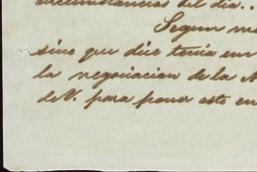 circunstancias del dia..
Segun me
sino que dice tenia em
la negociacion de la
de V. para poner esto en